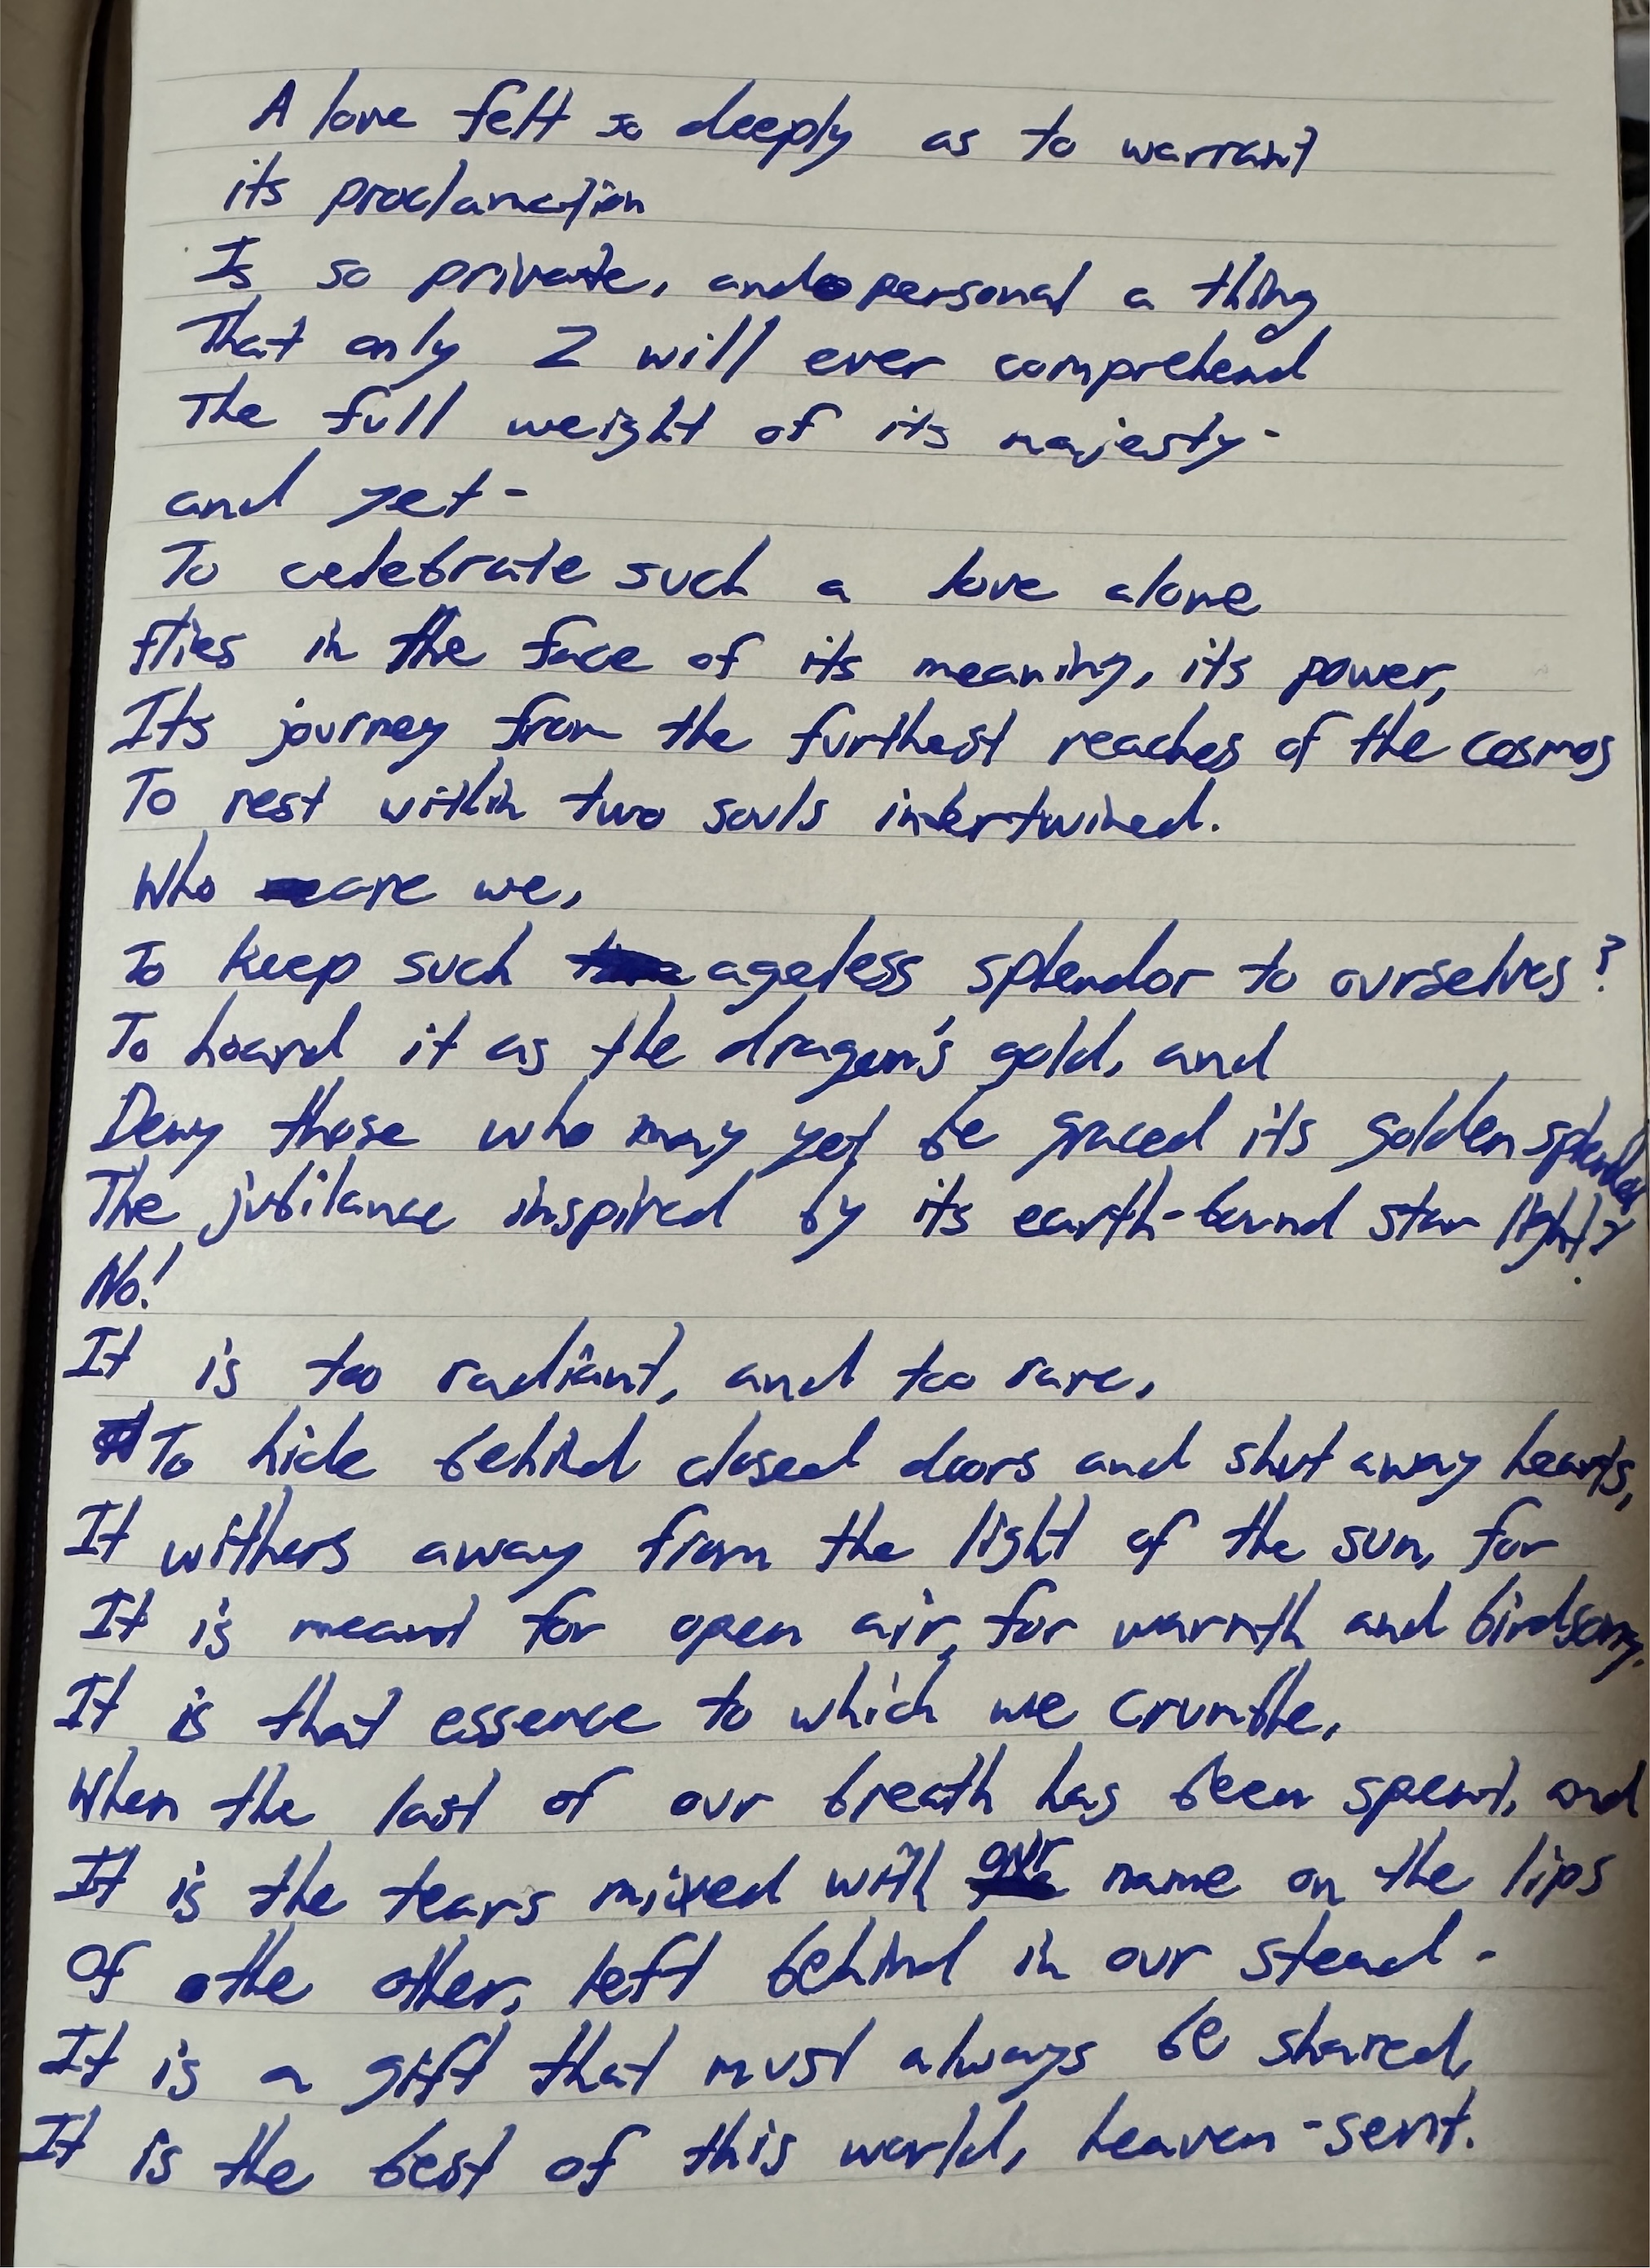 A love felt so deeply as to warrant
its proclamation
Is so private, and personal a thing
That only 2 will ever comprehend
The full weight of its majesty-
and yet-
To celebrate such a love alone
flies in the face of its meaning, its power,
Its journey from the furthest reaches of the cosmos
To rest within two souls intertwined.
Who are we,
To keep such ageless splendor to ourselves?
To hoard it as the dragon's gold, and
Deny those who may yet be graced its golden splendor
The jubilance inspired by its earth-bound star light?
No!
It is too radiant, and too rare,
To hide behind closed doors and shut away hearts,
It withers away from the light of the sun, for
It is meant for open air, for warmth and birdsong.
It is that essence to which we crumble,
When the last of our breath has been spent, and
It is the tears mixed with our name on the lips
Of the other, left behind in our stead-
It is a gift that must always be shared,
It is the best of this world, heaven-sent.